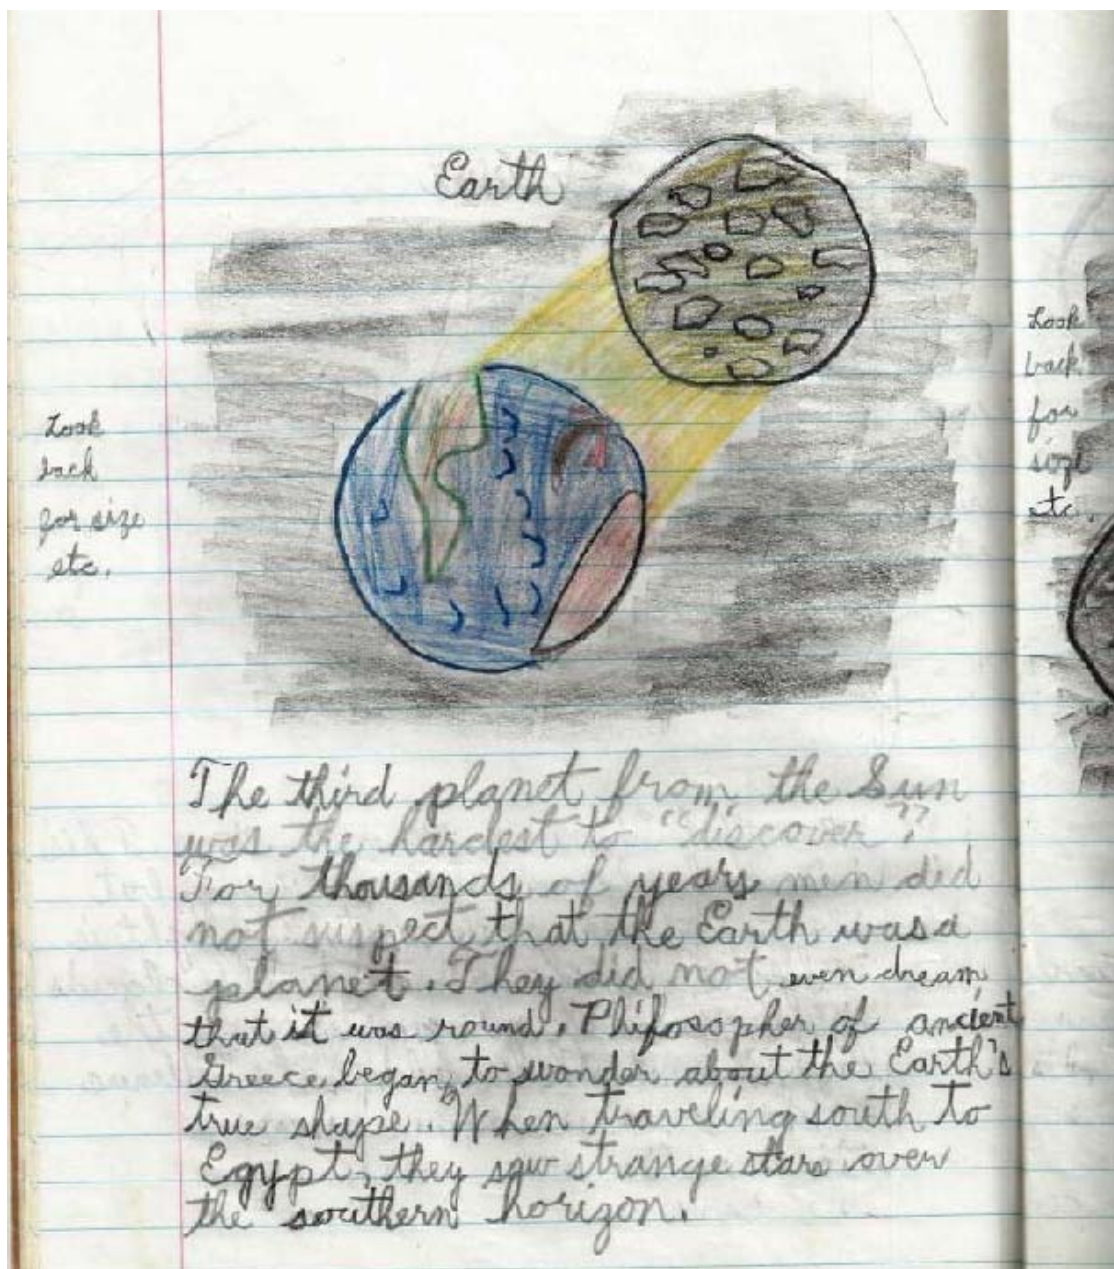 Earth
Look
back
for size
etc.
Look
back
for
size
etc.
The third planet from the Sun
was the hardest to "discover".
For thousands of years men did
not suspect that the Earth was a
planet. They did not even dream
that it was round. Phifosopher of ancient
Greece began to wonder about the Earth's
true shape. When traveling south to
Egypt, they saw strange stars over
the southern horizon.